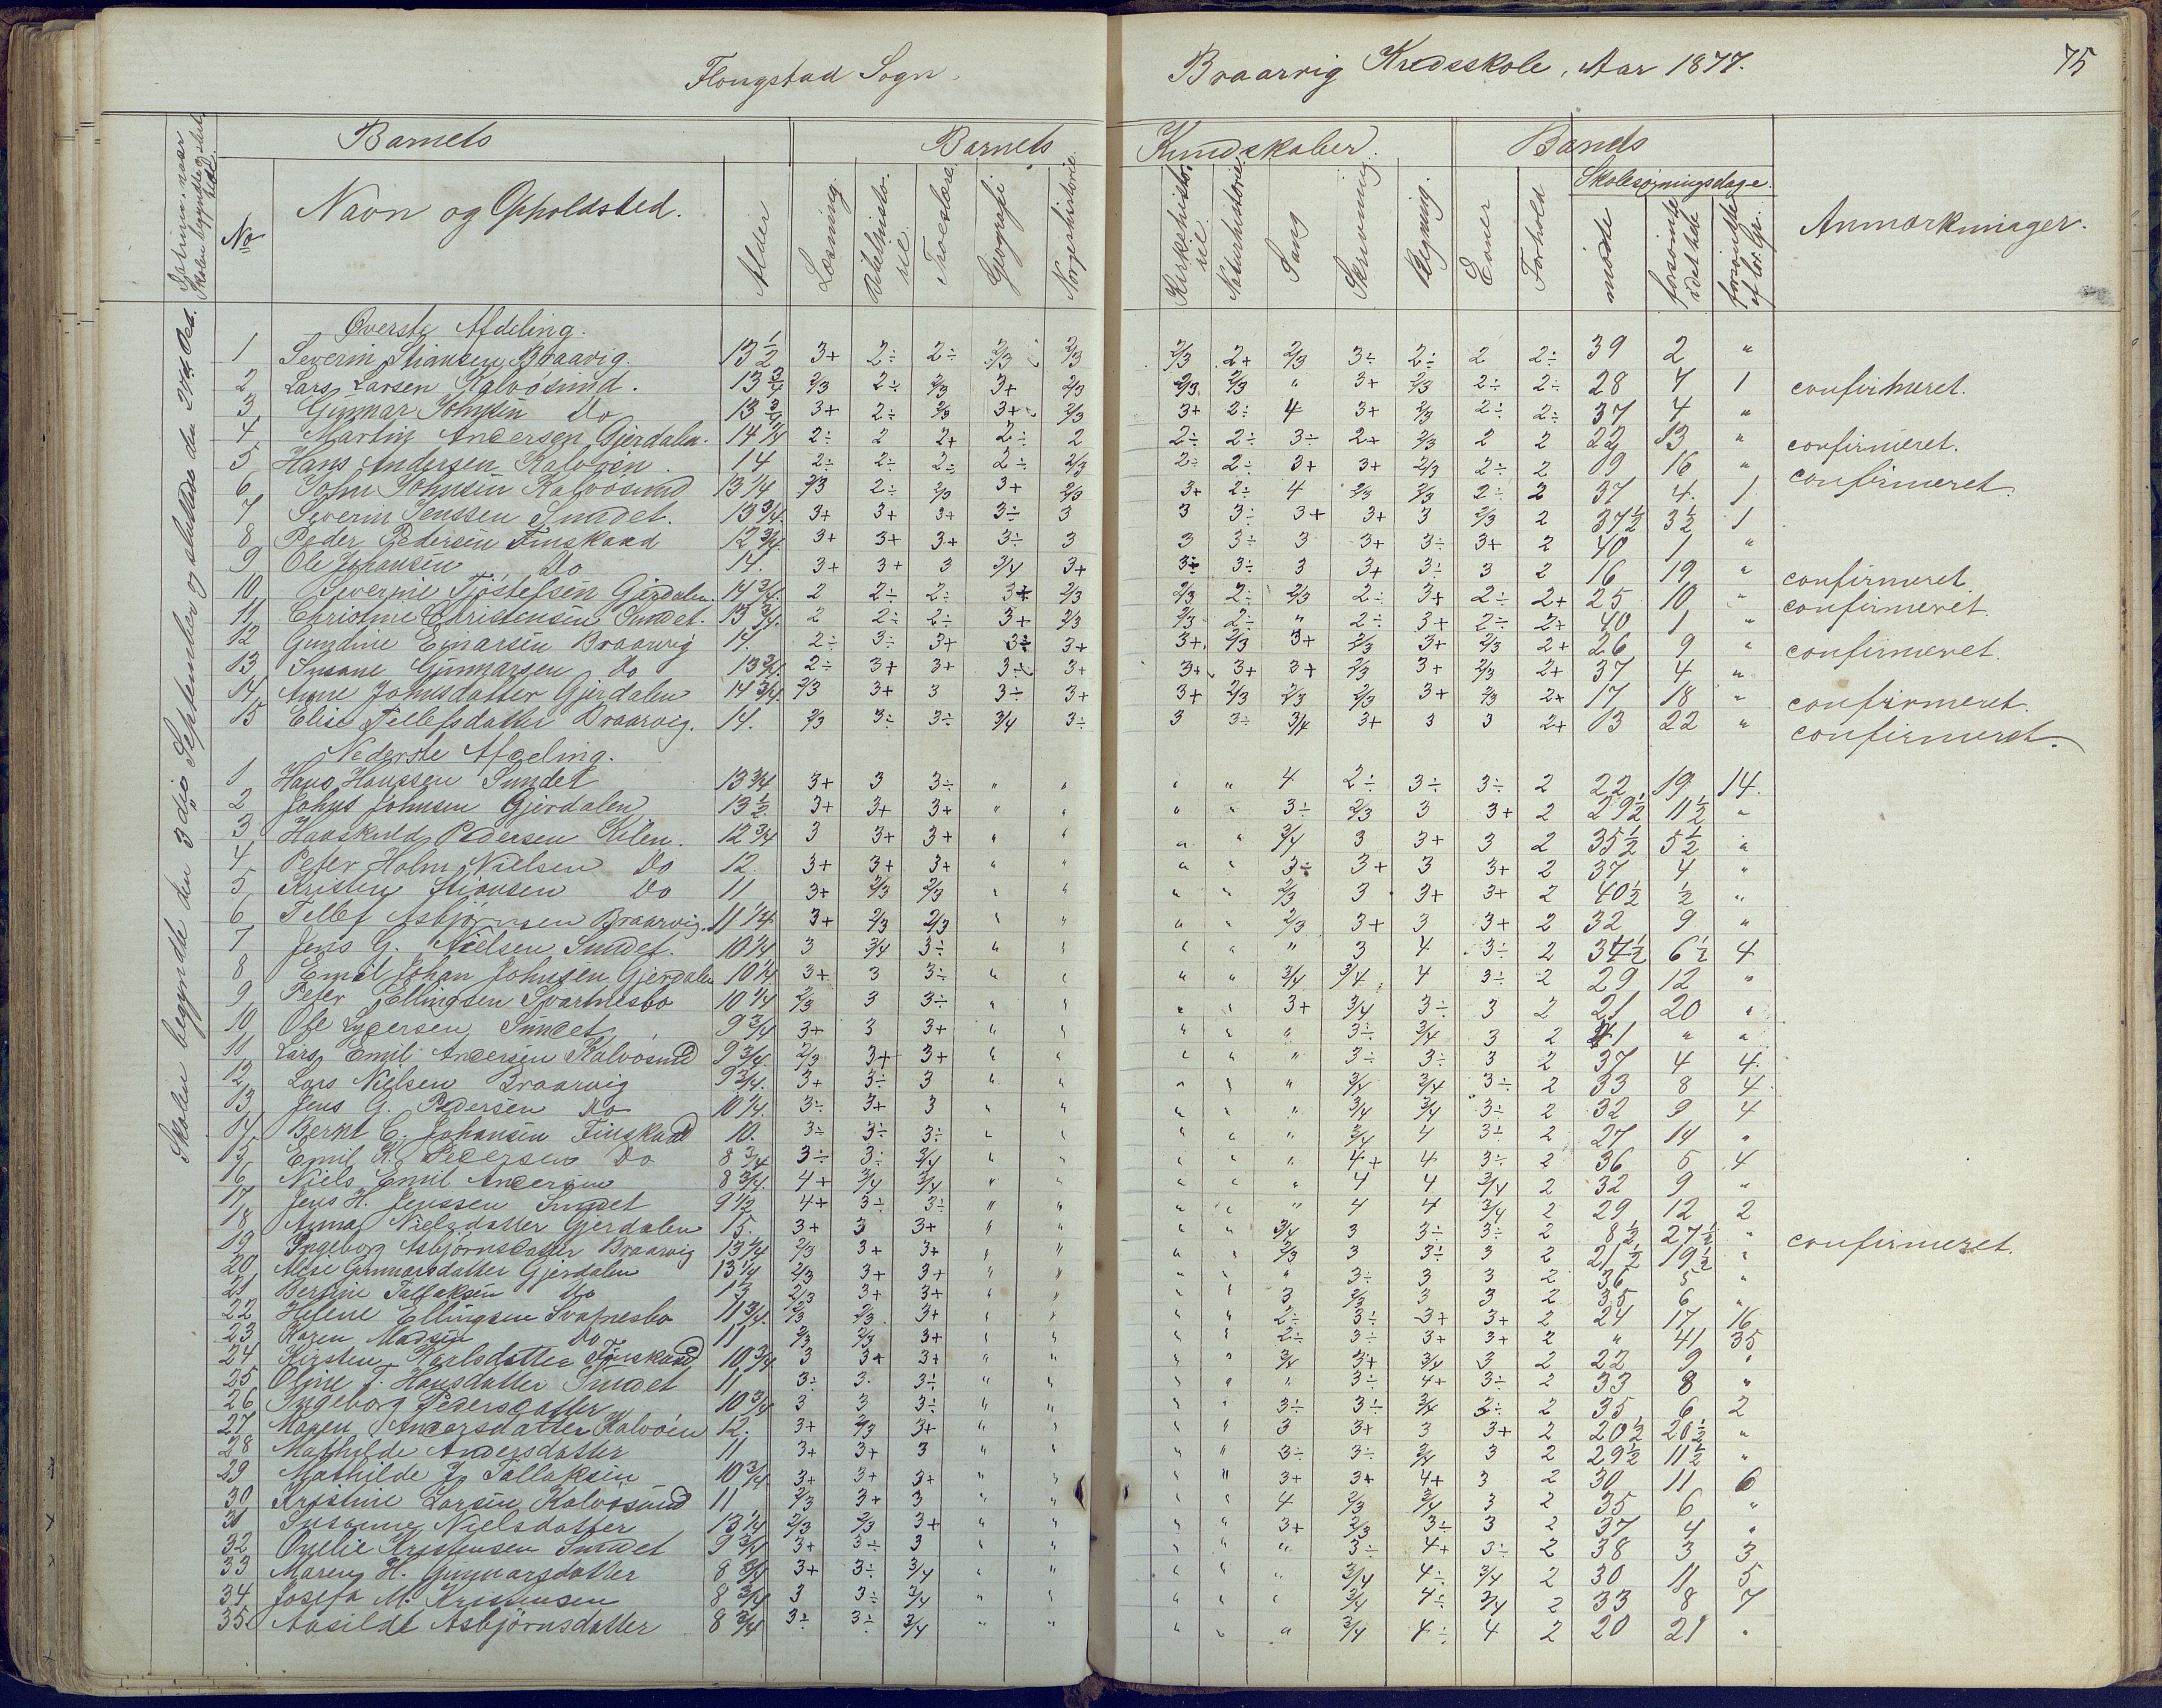 Flougstad Sogn.
Braarvig Kredsskole, Aar 1877.
75
Barnets
Barnets
Kundskaber.
Barnets
Skolesøgningsdage.
Anmærkninger.
No
Navn og Opholdsted.
Alder
Læsning.
Bibelhistorie.
Troeslære
Geografi
Norgeshistorie.
Kirkehistorie.
Naturhistorie
Sang
Skrivning
Regning.
Evner
Forhold
mødte
forsømte i det hele
forsømte af lov. Gr.
Skolen begyndte den 3die September og sluttede den Oct.
Øverste Afdeling.
1 Severin Stiansen Braavig 13 1/2 3+ 2÷ 2÷ 2/3 2/3 2/3 2+ 2/3 3÷ 2÷ 2 2÷ 39 2 "
2 Lars Larsen Kalvøsund. 13 3/4 2/3 2÷ 2/3 3+ 2/3 2/3 2/3 " 3+ 2/3 2÷ 2÷ 28 7 1 confirmeret.
3 Gunnar Johnsen Do 13 3/4 3+ 2÷ 2/3 3+ 2/3 3+ 2÷ 4 3+ 2/3 2÷ 2÷ 37 4 "
4 Martin Andersen Gjerdalen. 14 1/4 2÷ 2 2+ 2÷ 2 2÷ 2÷ 3÷ 2+ 2/3 2 2 22 13 " confirmeret.
5 Hans Andersen Kalvøen. 14 2÷ 2÷ 2÷ 2÷ 2/3 2÷ 2÷ 3+ 3+ 2/3 2÷ 2 19 16 " confirmeret.
6 John Johnsen Kalvøsund 13 1/4 2/3 2÷ 2/3 3+ 2/3 3+ 2÷ 4 2/3 2/3 2÷ 2 37 4 1
7 Severin Jenssen Sundet. 13 3/4 3+ 3+ 3+ 3÷ 3 3 3÷ 3+ 3+ 3 2/3 2 37 1/2 3 1/2 1
8 Peder Pedersen Finskaad 12 3/4 3+ 3+ 3+ 3÷ 3 3 3÷ 3 3+ 3÷ 3+ 2 40 1 "
9 Ole Johansen Do 14. 3+ 3+ 3 3/4 3+ 3÷ 3÷ 3 3+ 3÷ 3 2 16 19 " confirmeret.
10 Severine Tjøstelsen Gjerdalen 14 3/4 2 2÷ 2÷ 3+ 2/3 2/3 2÷ 2/3 2÷ 3+ 2÷ 2+ 25 10 " confirmeret
11 Christine Christensen Sundet. 13 3/4 2 2÷ 2÷ 3+ 2/3 2/3 2÷ " 2÷ 3+ 2÷ 2+ 40 1 "
12 Gundine Einarsen Braarvig 14. 2÷ 3÷ 3+ 3÷ 3+ 3+ 2/3 3+ 2/3 3+ 2/3 2+ 26 9 " confirmeret.
13 Susane Gunnarsen Do 13 3/4 2÷ 3+ 3+ 3÷ 3+ 3+ 3+ 3+ 2/3 3+ 2/3 2+ 37 4 "
14 Anne Johnsdatter Gjerdalen 14 3/4 2/3 3+ 3 3÷ 3+ 3+ 2/3 2/3 2/3 3+ 2/3 2+ 17 18 " confirmeret.
15 Elise Tellefsdatter Braarvig. 14. 2/3 3÷ 3÷ 3/4 3÷ 3 3÷ 3/4 3+ 3 3 2+ 13 22 " confirmeret.
Nederste Afdeling.
1 Hans Hanssen Sundet 13 3/4 3+ 3 3÷ " " " " 4 2÷ 3÷ 3÷ 2 22 19 14.
2 Johns Johnsen Gjerdalen 13 1/2 3+ 3+ 3+ " " " " 3÷ 2/3 3 3+ 2 29 1/2 11 1/2 "
3 Haaskuld Pedersen Kilen. 12 3/4 3 3+ 3+ " " " " 3/4 3 3+ 3 2 35 1/2 5 1/2 "
4 Peter Holm Nielsen Do 12. 3+ 3+ 3+ " " " " 3÷ 3+ 3 3+ 2 37 4 "
5 Kristen Stiansen Do 11 3+ 2/3 2/3 " " " " 2/3 3 3+ 3+ 2 40 1/2 1/2 "
6 Tellef Asbjørnsen Braarvig. 11 1/4 3+ 2/3 2/3 " " " " 2/3 3+ 3 3+ 2 32 9 "
7 Jens G. Nielsen Sundet. 10 1/4 3 3/4 3÷ " " " " " 3 4 3÷ 2 34 1/2 6 1/2 4
8 Emil Johan Johnsen Gjerdalen 10 1/4 3+ 3 3÷ " " " " 3/4 3/4 4 3÷ 2 29 12 "
9 Peter Ellingsen Svartnesbo 10 1/4 2/3 3 3÷ " " " " 3+ 3/4 3÷ 3 2 21 20 "
10 Ole Lydersen Sundet 9 3/4 3+ 3 3+ " " " " " 3÷ 3/4 3 2 41 " "
11 Lars Emil Andersen Kalvøsund 9 3/4 2/3 3+ 3+ " " " " " 3÷ 3÷ 3 2 37 4 4.
12 Lars Nielsen Braarvig 9 3/4. 3+ 3÷ 3 " " " " " 3/4 3/4 3÷ 2 33 8 4.
13 Jens G. Pedersen Do 10 1/4. 3÷ 3+ 3 " " " " " 3/4 3/4 3÷ 2 32 9 4
14 Bernt C. Johansen Finskaad 10. 3÷ 3÷ 3÷ " " " " " 3/4 4 3÷ 2 27 14 "
15 Emil K. Pedersen Do 8 3/4 3÷ 3÷ 3/4 " " " " " 4+ 4 3÷ 2 36 5 4
16 Niels Emil Andersen 8 3/4. 4+ 3/4 3/4 " " " " " 4 4 3/4 2 32 9 "
17 Jens H. Jenssen Sundet 9 1/2 4+ 3÷ 3÷ " " " " " 4 4 3/4 2 29 12 2
18 Anna Nielsdatter Gjerdalen 15. 3+ 3 3+ " " " " 3/4 3 3÷ 3÷ 2 8 1/2 27 1/2 " confirmeret.
19 Ingeborg Asbjørnsdatter Braarvig 13 1/4 2/3 3+ 3+ " " " " 2/3 3 3÷ 3 2 21 1/2 19 1/2 "
20 Aase Gunnarsdatter Gjerdalen 13 1/4 2/3 3+ 3+ " " " " " 3÷ 3 3 2 36 5 "
21 Bertine Tallaksen Do 13 2/3 3+ 3+ " " " " 3 2/3 3 3 2 35 6 "
22 Helene Ellingsen Svartnesbo 11 3/4. 2/3 2/3 3+ " " " " 2÷ 3÷ 3+ 3+ 2 24 17 16
23 Karen Madsen Do 11 2/3 2/3 3+ " " " " 2÷ 3÷ 3+ 3+ 2 " 41 35
24 Kirsten Karlsdatter Finskaad 10 3/4 3 3+ 3+ " " " " 3/4 3+ 3/4 3 2 22 9 "
25 Oline T. Hansdatter Sundet 11 3÷ 3 3÷ " " " " " 3÷ 4+ 3÷ 2 33 8 "
26 Ingeborg Pedersdatter 10 3/4 3 3 3÷ " " " " 3÷ 3÷ 3/4 3÷ 2 35 6 2
27 Maren Andersdatter Kalvøen 12. 3+ 2/3 3+ " " " " 3 3+ 3 3+ 2 20 1/2 20 1/2 "
28 Mathilde Andersdatter 11 3+ 3+ 3 " " " " 3÷ 3÷ 3/4 3 2 29 1/2 11 1/2 "
29 Mathilde J. Tallaksen 10 3/4 3+ 3+ 3+ " " " " 3+ 3+ 4+ 3 2 30 11 6
30 Kristine Larsen Kalvøsund 11 2/3 3+ 3 " " " " 4 2/3 3/4 3 2 35 6 "
31 Susanne Nielsdatter 13 1/4 2/3 2/3 3+ " " " " 3+ 2/3 3÷ 3 2 37 4 "
32 Omelie Kristensen Sundet 9 3/4 3+ 3÷ 3 " " " " " 3÷ 4+ 3÷ 2 38 3 3
33 Maren H. Gunnarsdatter 8 3/4 3+ 3÷ 3/4 " " " " " 3/4 4÷ 3/4 2 30 11 5
34 Josefa M. Kristensen 8 3/4 3 3÷ 3/4 " " " " " 3/4 4÷ 3/4 2 33 8 7
35 Aasilde Asbjørnsdatter 8 3/4 3÷ 3÷ 3/4 " " " " " 3/4 4÷ 4 2 20 21 "